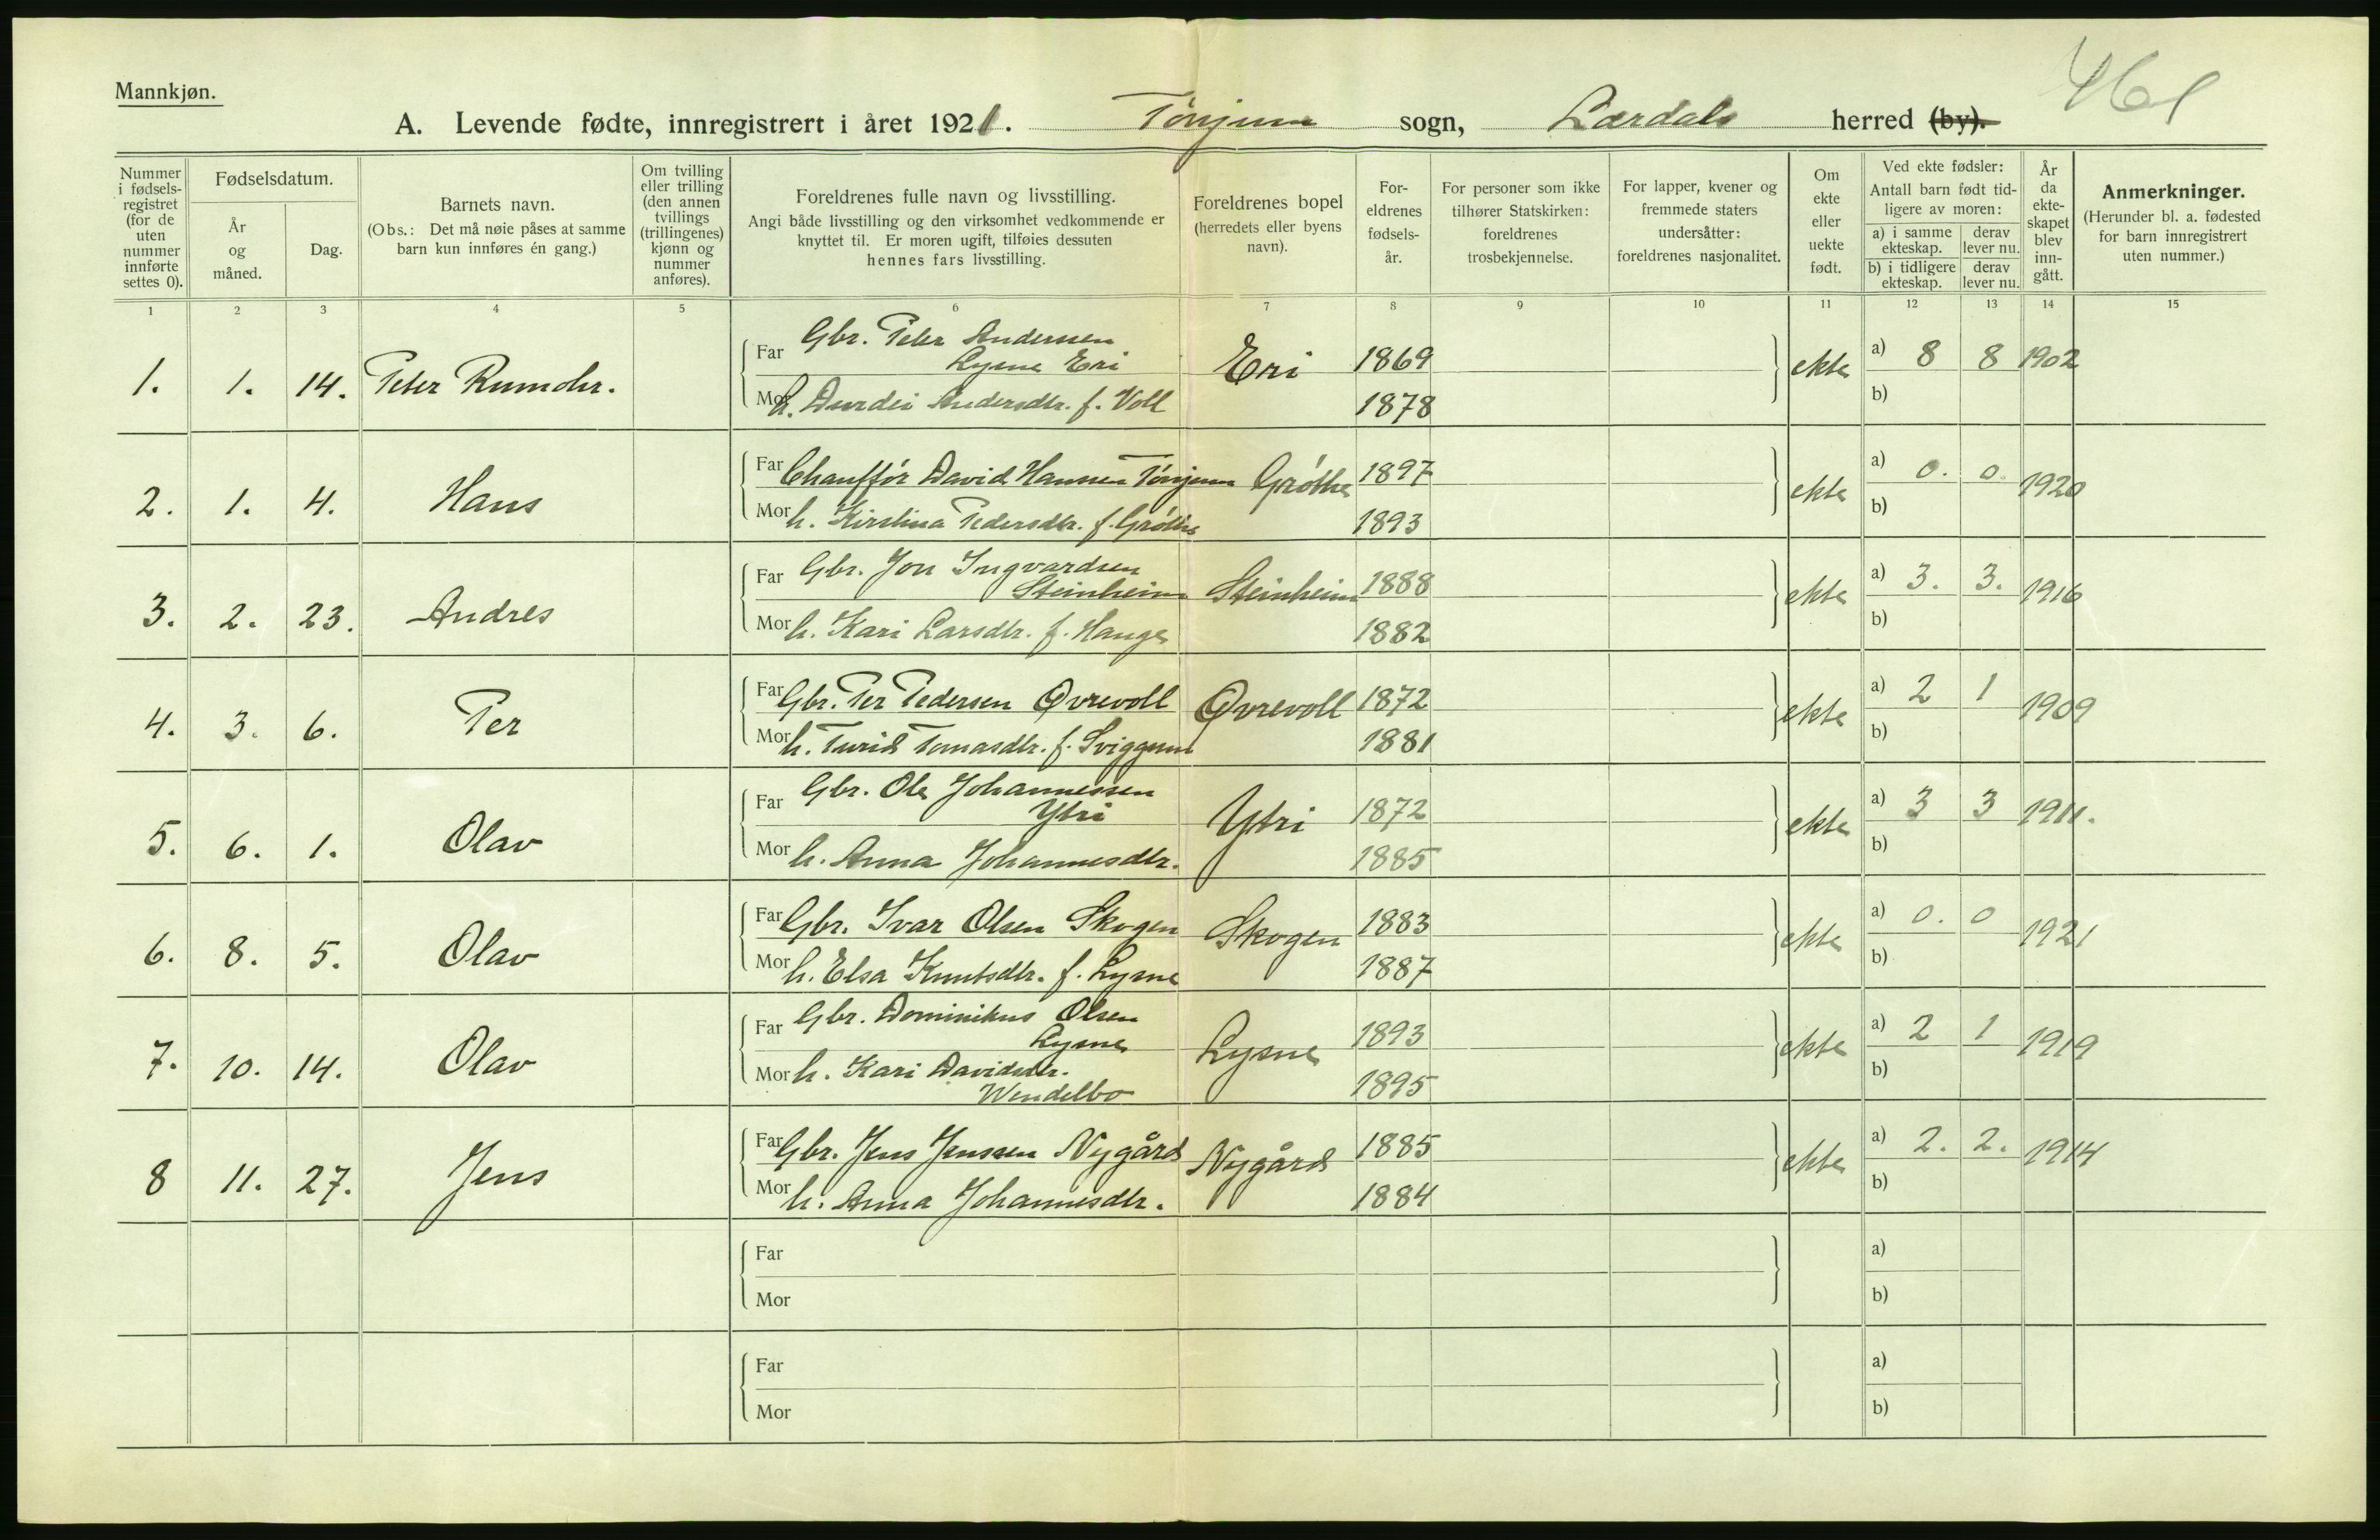 Mannkjøn.
461
A. Levende fødte, innregistrert i året 1921. Tønjum sogn, Lærdals herred (by).
Nummer i fødsels-registret (for de uten nummer innførte settes 0).
Fødselsdatum.
År og måned.
Dag.
Barnets navn.
(Obs.: Det må nøie påses at samme barn kun innføres én gang.)
Om tvilling eller trilling (den annen tvillings (trillingenes) kjønn og nummer anføres).
Foreldrenes fulle navn og livsstilling.
Angi både livsstilling og den virksomhet vedkommende er knyttet til. Er moren ugift, tilføies dessuten hennes fars livsstilling.
Foreldrenes bopel (herredets eller byens navn).
For-eldrenes fødsels-år.
For personer som ikke tilhører Statskirken: foreldrenes trosbekjennelse.
For lapper, kvener og fremmede staters undersåtter: foreldrenes nasjonalitet.
Om ekte eller uekte født.
Ved ekte fødsler:
Antall barn født tid-ligere av moren:
a) i samme ekteskap. derav lever nu.
b) i tidligere ekteskap. derav lever nu.
År da ekte-skapet blev inn-gått.
Anmerkninger.
(Herunder bl. a. fødested for barn innregistrert uten nummer.)
1 2 3 4 5 6 7 8 9 10 11 12 13 14 15
1. 1. 14. Peter Rumohr.
Far Gbr. Peter Andersen
Lysne Eri Eri 1869 ekte a) 8 8 1902
Mor h. Durdei Andersdtr. f. Voll 1878 b)
2. 1. 4. Hans
Far Chauffør David Hansen Tønjum Grøthe 1897 ekte a) 0. 0. 1920
Mor h. Kirstina Pedersdtr. f. Grøthe 1893 b)
3. 2. 23. Andres
Far Gbr. Jon Ingvardsen
Steinheim Steinheim 1888 ekte a) 3. 3. 1916
Mor h. Kari Larsdtr. f. Hauge 1882 b)
4. 3. 6. Per
Far Gbr. Per Pedersen Øvrevoll Øvrevoll 1872 ekte a) 2 1 1909
Mor h. Turid Tomasdtr. f. Sviggum 1881 b)
5. 6. 1. Olav
Far Gbr. Ole Johannessen
Ytri Ytri 1872 ekte a) 3 3 1911.
Mor h. Anna Johannesdtr. 1885 b)
6. 8. 5. Olav
Far Gbr. Ivar Olsen Skogen Skogen 1883 ekte a) 0. 0 1921
Mor h. Elsa Knutsdtr. f. Lysne 1887 b)
7. 10. 14. Olav
Far Gbr. Dominikus Olsen
Lysne Lysne 1893 ekte a) 2 1 1919
Mor h. Kari Davidsdtr.
Wendelbo 1895 b)
8 11. 27. Jens
Far Gbr. Jens Jenssen Nygård Nygård 1885 ekte a) 2. 2. 1914
Mor h. Anna Johannesdtr. 1884 b)
Far a)
Mor b)
Far a)
Mor b)